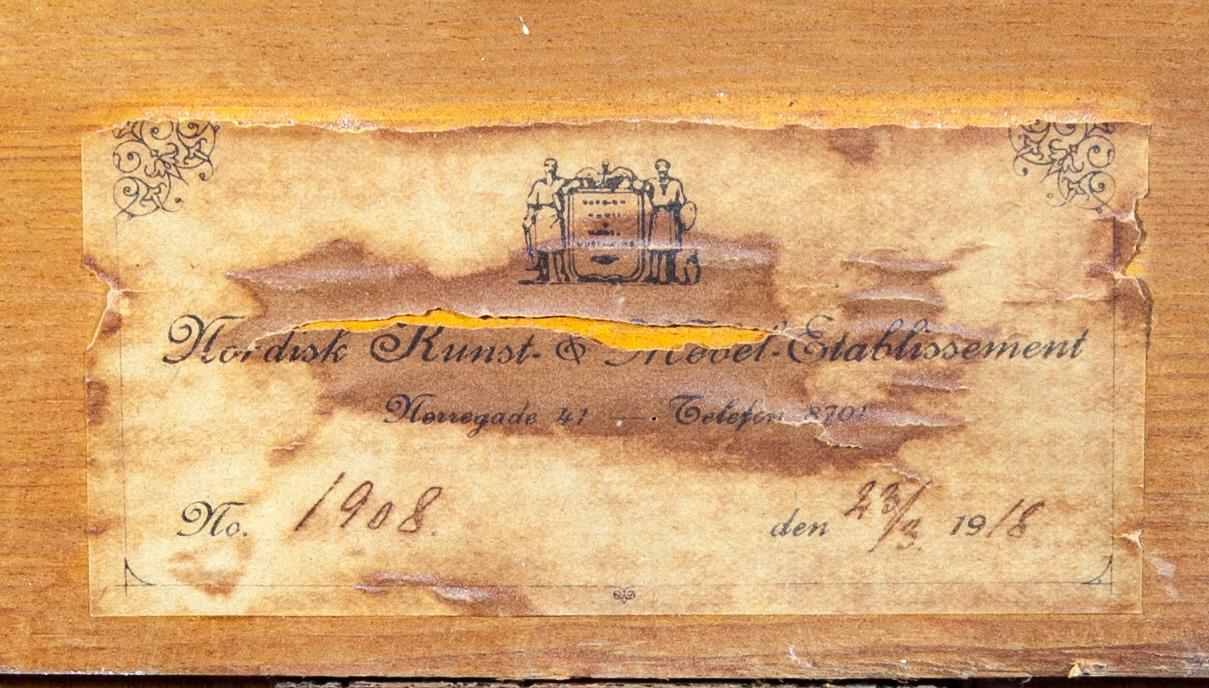 Nordisk Kunst- & Møbel-Etablissement
Nørregade 41 — Telefon 8701
No. 1908. den 23/3. 1918